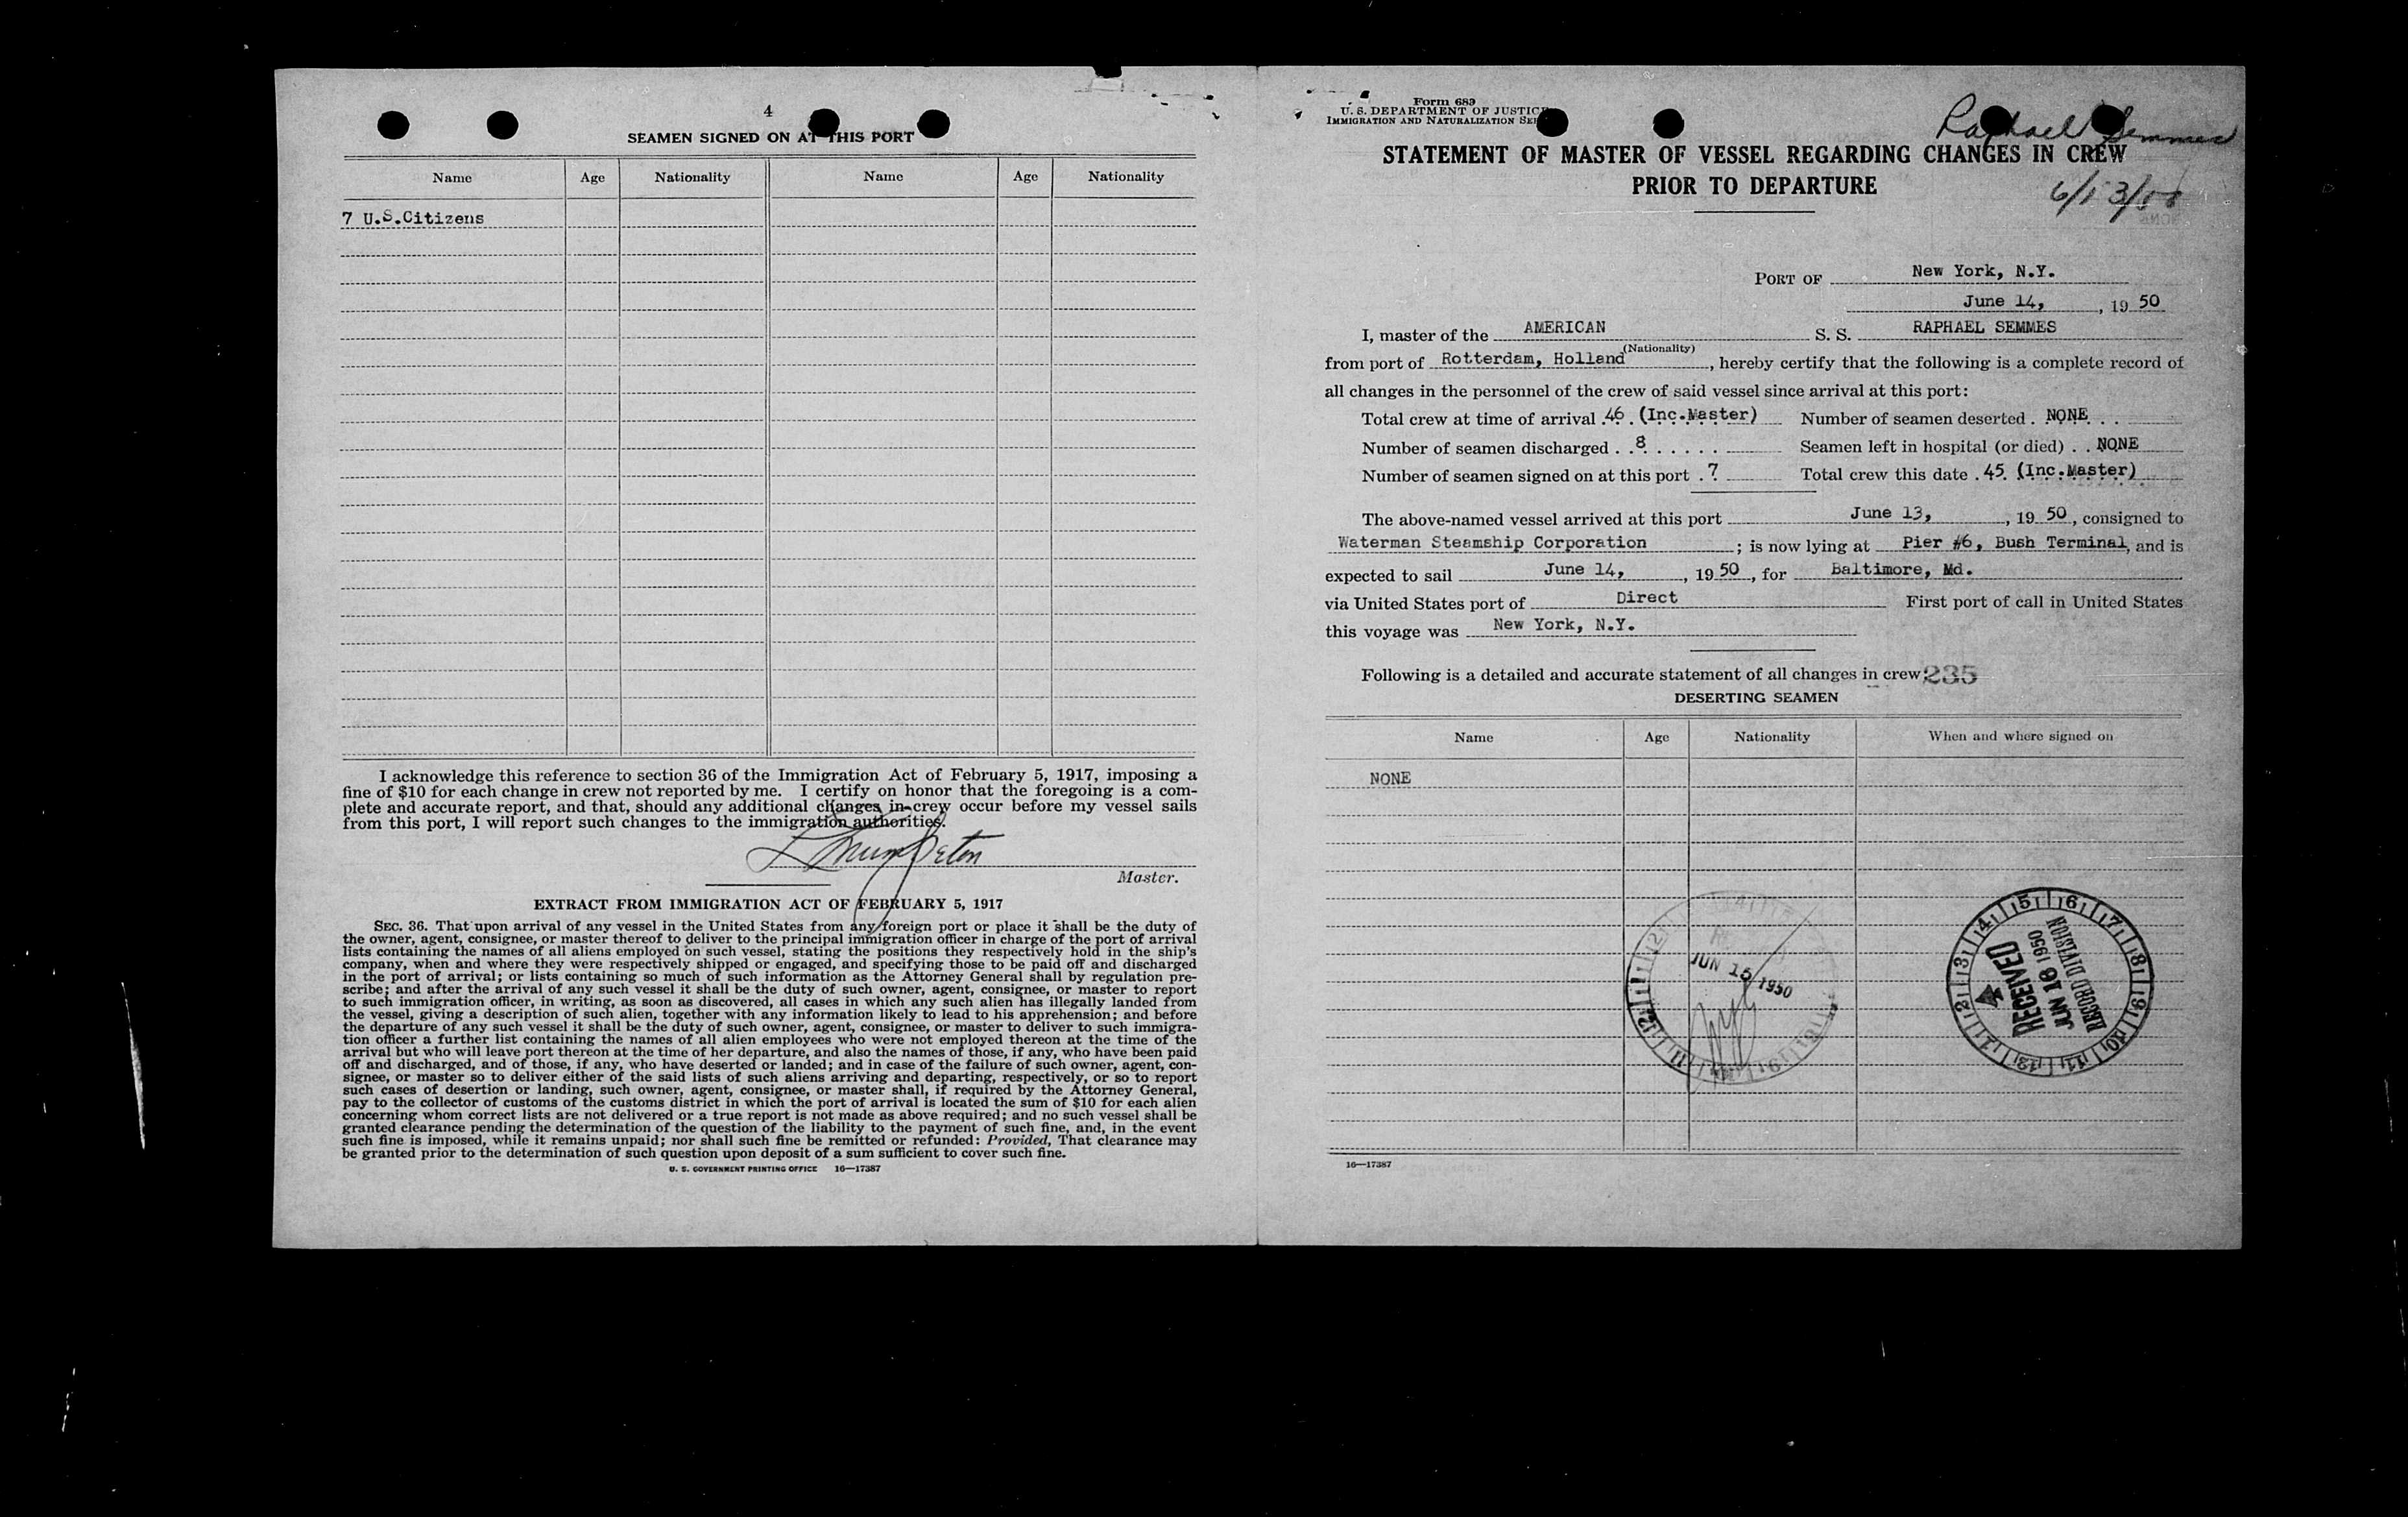 4
SEAMEN SIGNED ON AT THIS PORT
Name Age Nationality Name Age Nationality
7 U.S.Citizens
I acknowledge this reference to section 36 of the Immigration Act of February 5, 1917, imposing a
fine of $10 for each change in crew not reported by me. I certify on honor that the foregoing is a com-
plete and accurate report, and that, should any additional changes in crew occur before my vessel sails
from this port, I will report such changes to the immigration authorities.
Master.
EXTRACT FROM IMMIGRATION ACT OF FEBRUARY 5, 1917
SEC. 36. That upon arrival of any vessel in the United States from any foreign port or place it shall be the duty of
the owner, agent, consignee, or master thereof to deliver to the principal immigration officer in charge of the port of arrival
lists containing the names of all aliens employed on such vessel, stating the positions they respectively hold in the ship's
company, when and where they were respectively shipped or engaged, and specifying those to be paid off and discharged
in the port of arrival; or lists containing so much of such information as the Attorney General shall by regulation pre-
scribe; and after the arrival of any such vessel it shall be the duty of such owner, agent, consignee, or master to report
to such immigration officer, in writing, as soon as discovered, all cases in which any such alien has illegally landed from
the vessel, giving a description of such alien, together with any information likely to lead to his apprehension; and before
the departure of any such vessel it shall be the duty of such owner, agent, consignee, or master to deliver to such immigra-
tion officer a further list containing the names of all alien employees who were not employed thereon at the time of the
arrival but who will leave port thereon at the time of her departure, and also the names of those, if any, who have been paid
off and discharged, and of those, if any, who have deserted or landed; and in case of the failure of such owner, agent, con-
signee, or master so to deliver either of the said lists of such aliens arriving and departing, respectively, or so to report
such cases of desertion or landing, such owner, agent, consignee, or master shall, if required by the Attorney General,
pay to the collector of customs of the customs district in which the port of arrival is located the sum of $10 for each alien
concerning whom correct lists are not delivered or a true report is not made as above required; and no such vessel shall be
granted clearance pending the determination of the question of the liability to the payment of such fine, and, in the event
such fine is imposed, while it remains unpaid; nor shall such fine be remitted or refunded: Provided, That clearance may
be granted prior to the determination of such question upon deposit of a sum sufficient to cover such fine.
U. S. GOVERNMENT PRINTING OFFICE 16—17387
Form 689
U. S. DEPARTMENT OF JUSTICE
IMMIGRATION AND NATURALIZATION
Raphael Semmes
STATEMENT OF MASTER OF VESSEL REGARDING CHANGES IN CREW
PRIOR TO DEPARTURE
6/13/50
PORT OF New York, N.Y.
June 14, , 19 50
I, master of the AMERICAN S. S. RAPHAEL SEMMES
(Nationality)
from port of Rotterdam, Holland , hereby certify that the following is a complete record of
all changes in the personnel of the crew of said vessel since arrival at this port:
Total crew at time of arrival 46 (Inc.Master) Number of seamen deserted NONE
Number of seamen discharged 8 Seamen left in hospital (or died) NONE
Number of seamen signed on at this port 7 Total crew this date 45 (Inc.Master)
The above-named vessel arrived at this port June 13, , 19 50 , consigned to
Waterman Steamship Corporation ; is now lying at Pier #6, Bush Terminal, and is
expected to sail June 14, , 19 50 , for Baltimore, Md.
via United States port of Direct First port of call in United States
this voyage was New York, N.Y.
Following is a detailed and accurate statement of all changes in crew: 235
DESERTING SEAMEN
Name Age Nationality When and where signed on
NONE
JUN 15 1950
RECEIVED
JUN 16 1950
RECORD DIVISION
16—17387